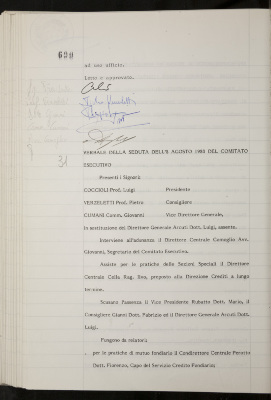 620
ed uso affitto.
Letto e approvato.
VERBALE DELLA SEDUTA DELL'8 AGOSTO 1980 DEL COMITATO
ESECUTIVO
Presenti i Signori:
COCCIOLI Prof. Luigi Presidente
VERZELETTI Prof. Pietro Consigliere
CUMANI Comm. Giovanni Vice Direttore Generale,
in sostituzione del Direttore Generale Arcuti Dott. Luigi, assente.
Interviene all'adunanza il Direttore Centrale Consiglio Avv.
Giovanni, Segretario del Comitato Esecutivo.
Assiste per le pratiche delle Sezioni Speciali il Direttore
Centrale Colla Rag. Geo, preposto alla Direzione Crediti a lungo
termine.
Scusano l'assenza il Vice Presidente Rubatto Dott. Mario, il
Consigliere Gianni Dott. Fabrizio ed il Direttore Generale Arcuti Dott.
Luigi.
Fungono da relatori:
- per le pratiche di mutuo fondiario il Condirettore Centrale
Dott. Fiorenzo, Capo del Servizio Credito Fondiario;